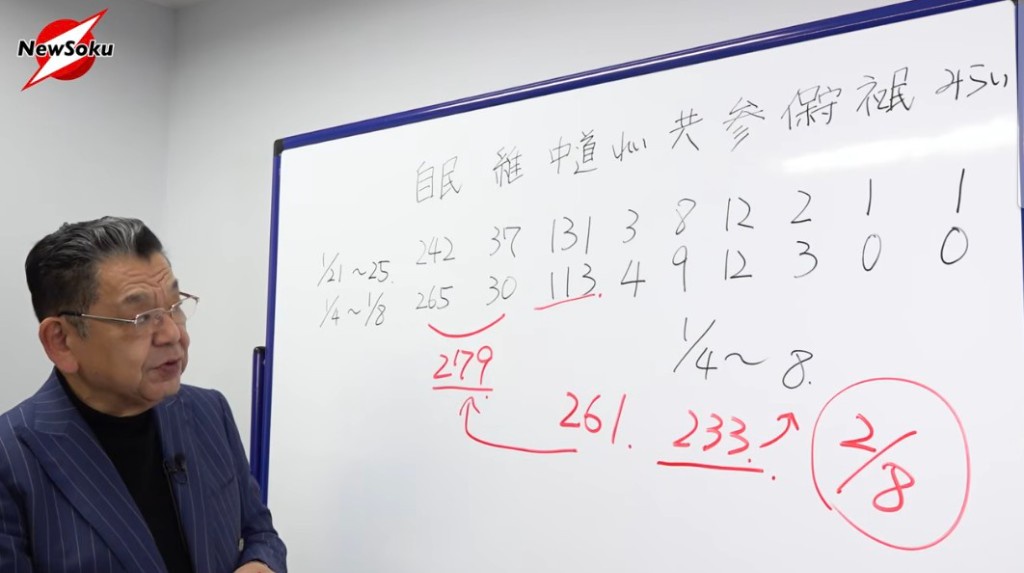 NewSoku
自民 維 中道 れい 共 参 保守 社民 みらい
1/21～25. 242 37 131 3 8 12 2 1 1
1/4～1/8 265 30 113. 4 9 12 3 0 0
279
1/4～8.
261. 233.
2/8